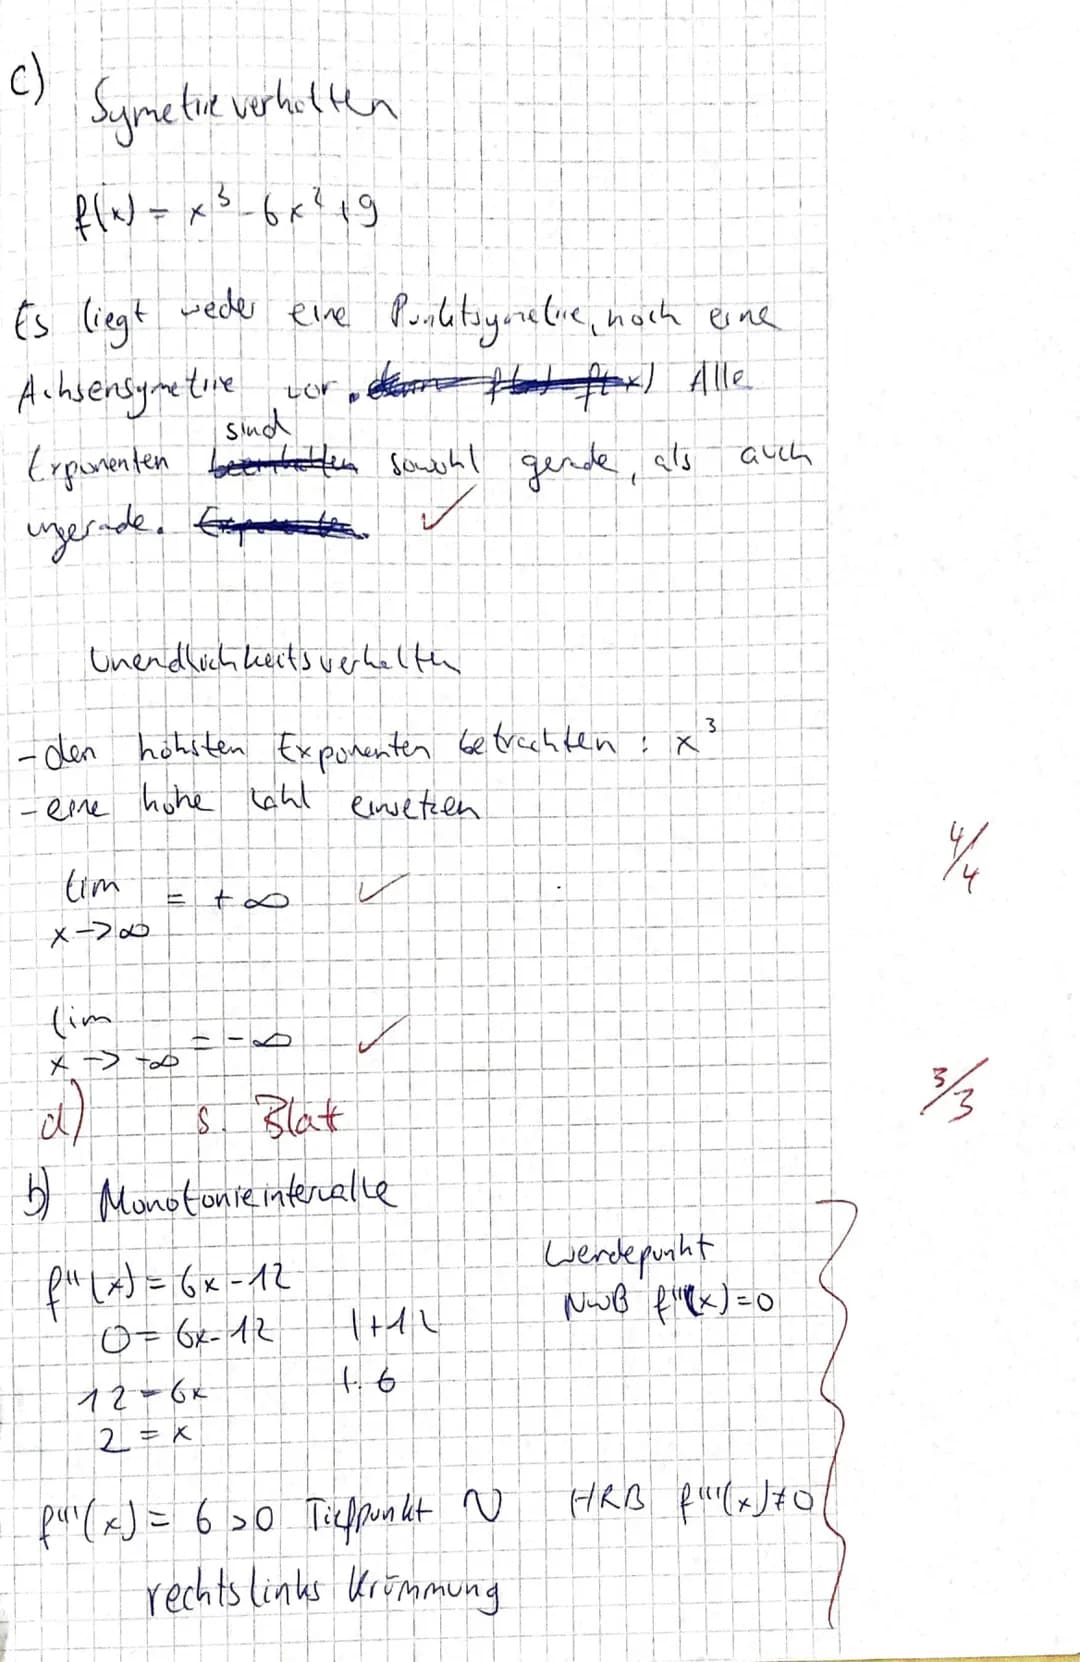 c)
Symetrieverhalten
f(x) = x³-6x²+9
Es liegt weder eine Punktsymetrie, noch eine
Achsensymetrie vor. Alle
sind
Exponenten sowohl gerade, als auch
ungerade. ✓
Unendlichkeitsverhalten
- den höhsten Exponenten betrachten : x³
- eine hohe Zahl einsetzen
4/4
lim = +∞ ✓
x->∞
lim
x -> -∞ = -∞ ✓
3/3
d) s. Blatt
b) Monotonieintervalle
Wendepunkt
f''(x) = 6x-12
NwB f''(x)=0
0 = 6x-12 |+12
12=6x |:6
2 = x
f'''(x) = 6 >0 Tiefpunkt HRB f'''(x)≠0
rechts links Krümmung